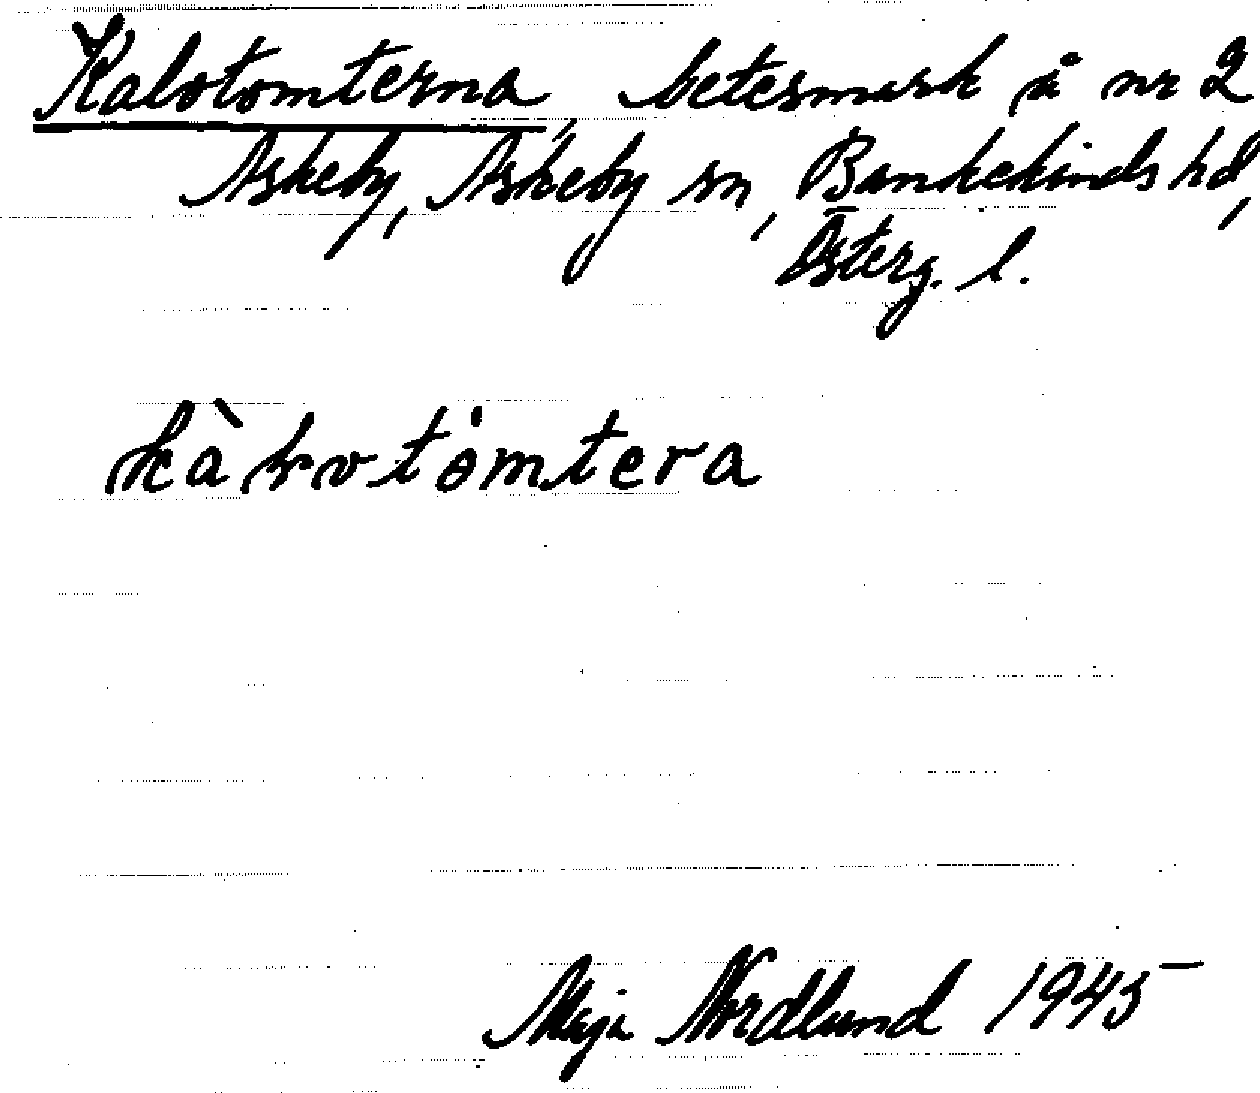 Kalvtomterna, betesmark å nr 2
Askeby, Askeby sn, Bankekinds hd,
Österg. l.
kàlvtȯmtera
Maja Nordlund 1945